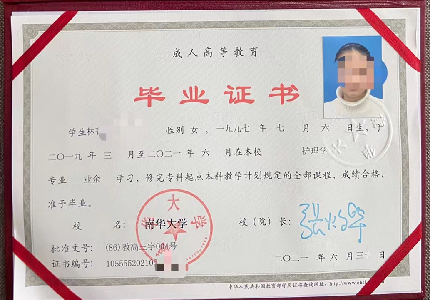 成人高等教育
毕业证书
学生林 性别女，一九九七年七月六日生，于
二〇一九年三月至二〇二一年六月在本校 护理学
专业 业余 学习，修完专科起点本科教学计划规定的全部课程，成绩合格，
准予毕业。
校 名： 南华大学 校（院）长：
批准文号：(86)教高三字004号
证书编号：10555520210
二〇二一年六月三